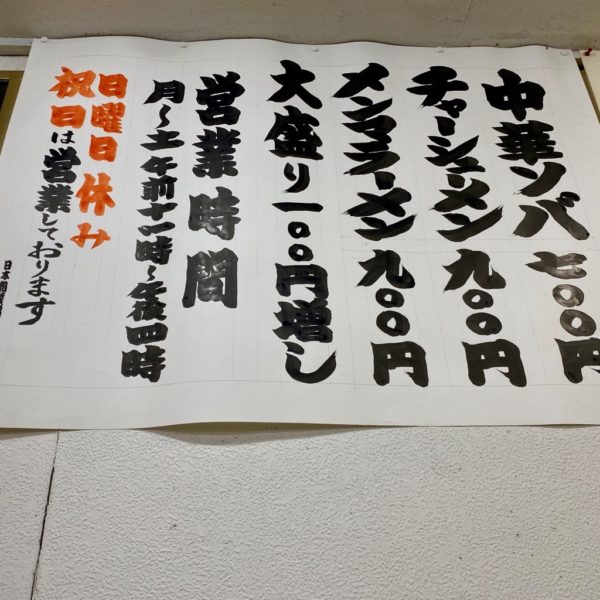 中華ソバ 七〇〇円
チャーシューメン 九〇〇円
メンマラーメン 九〇〇円
大盛り一〇〇円増し
営業時間
月〜土 午前十一時〜午後四時
日曜日休み
祝日は営業しております